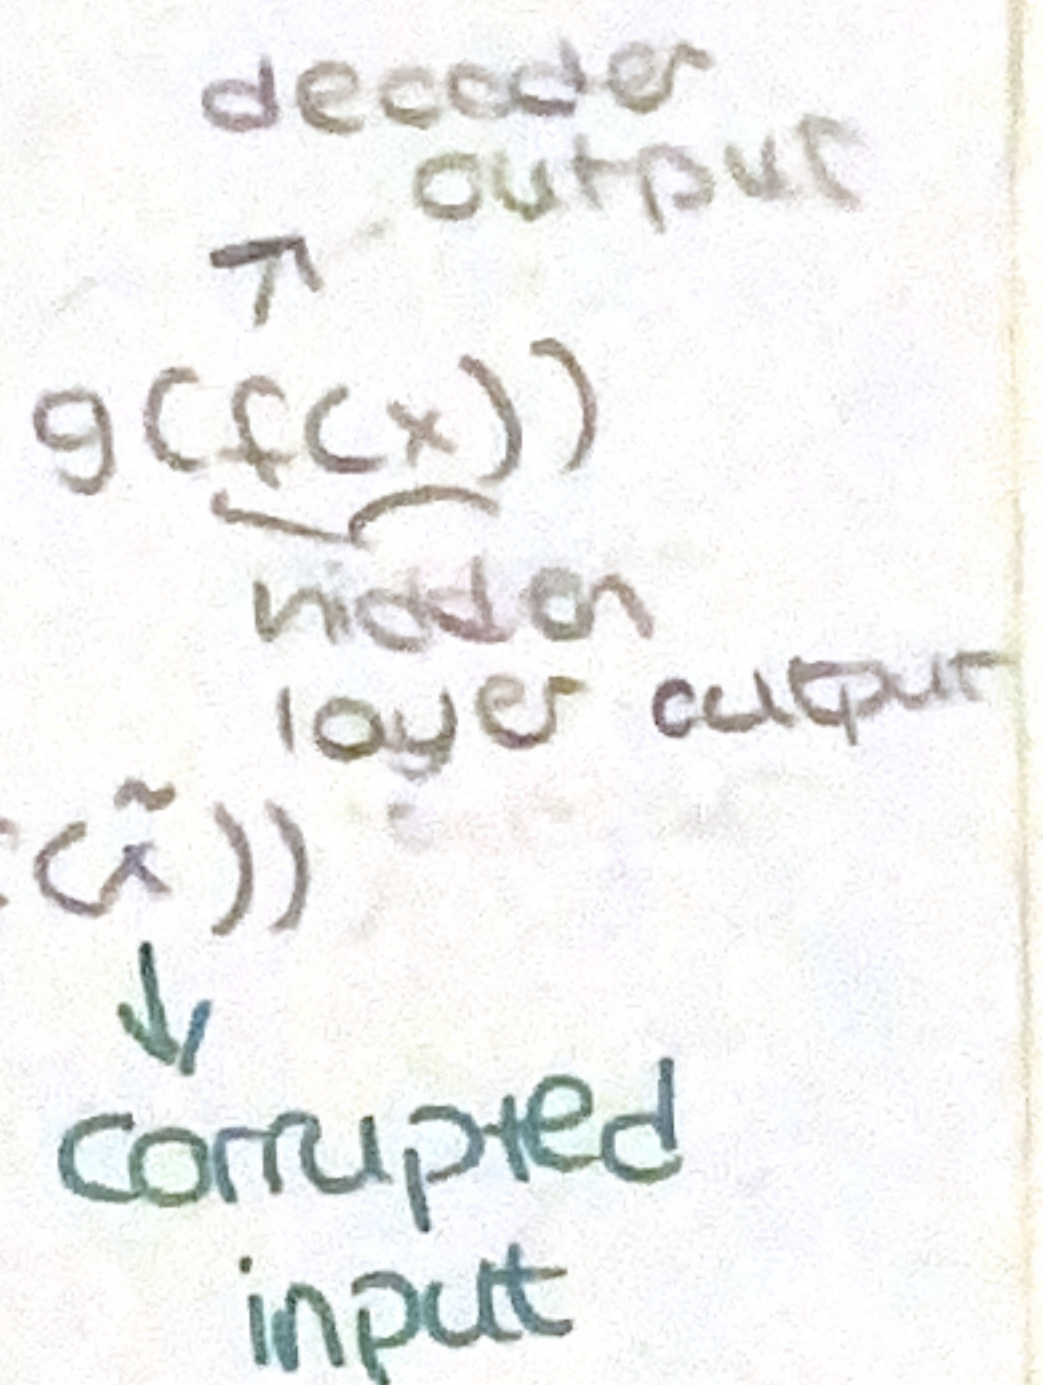 decoder
output
↗
g(f(x))
hidden
layer output
(x̃))
↓
corrupted
input